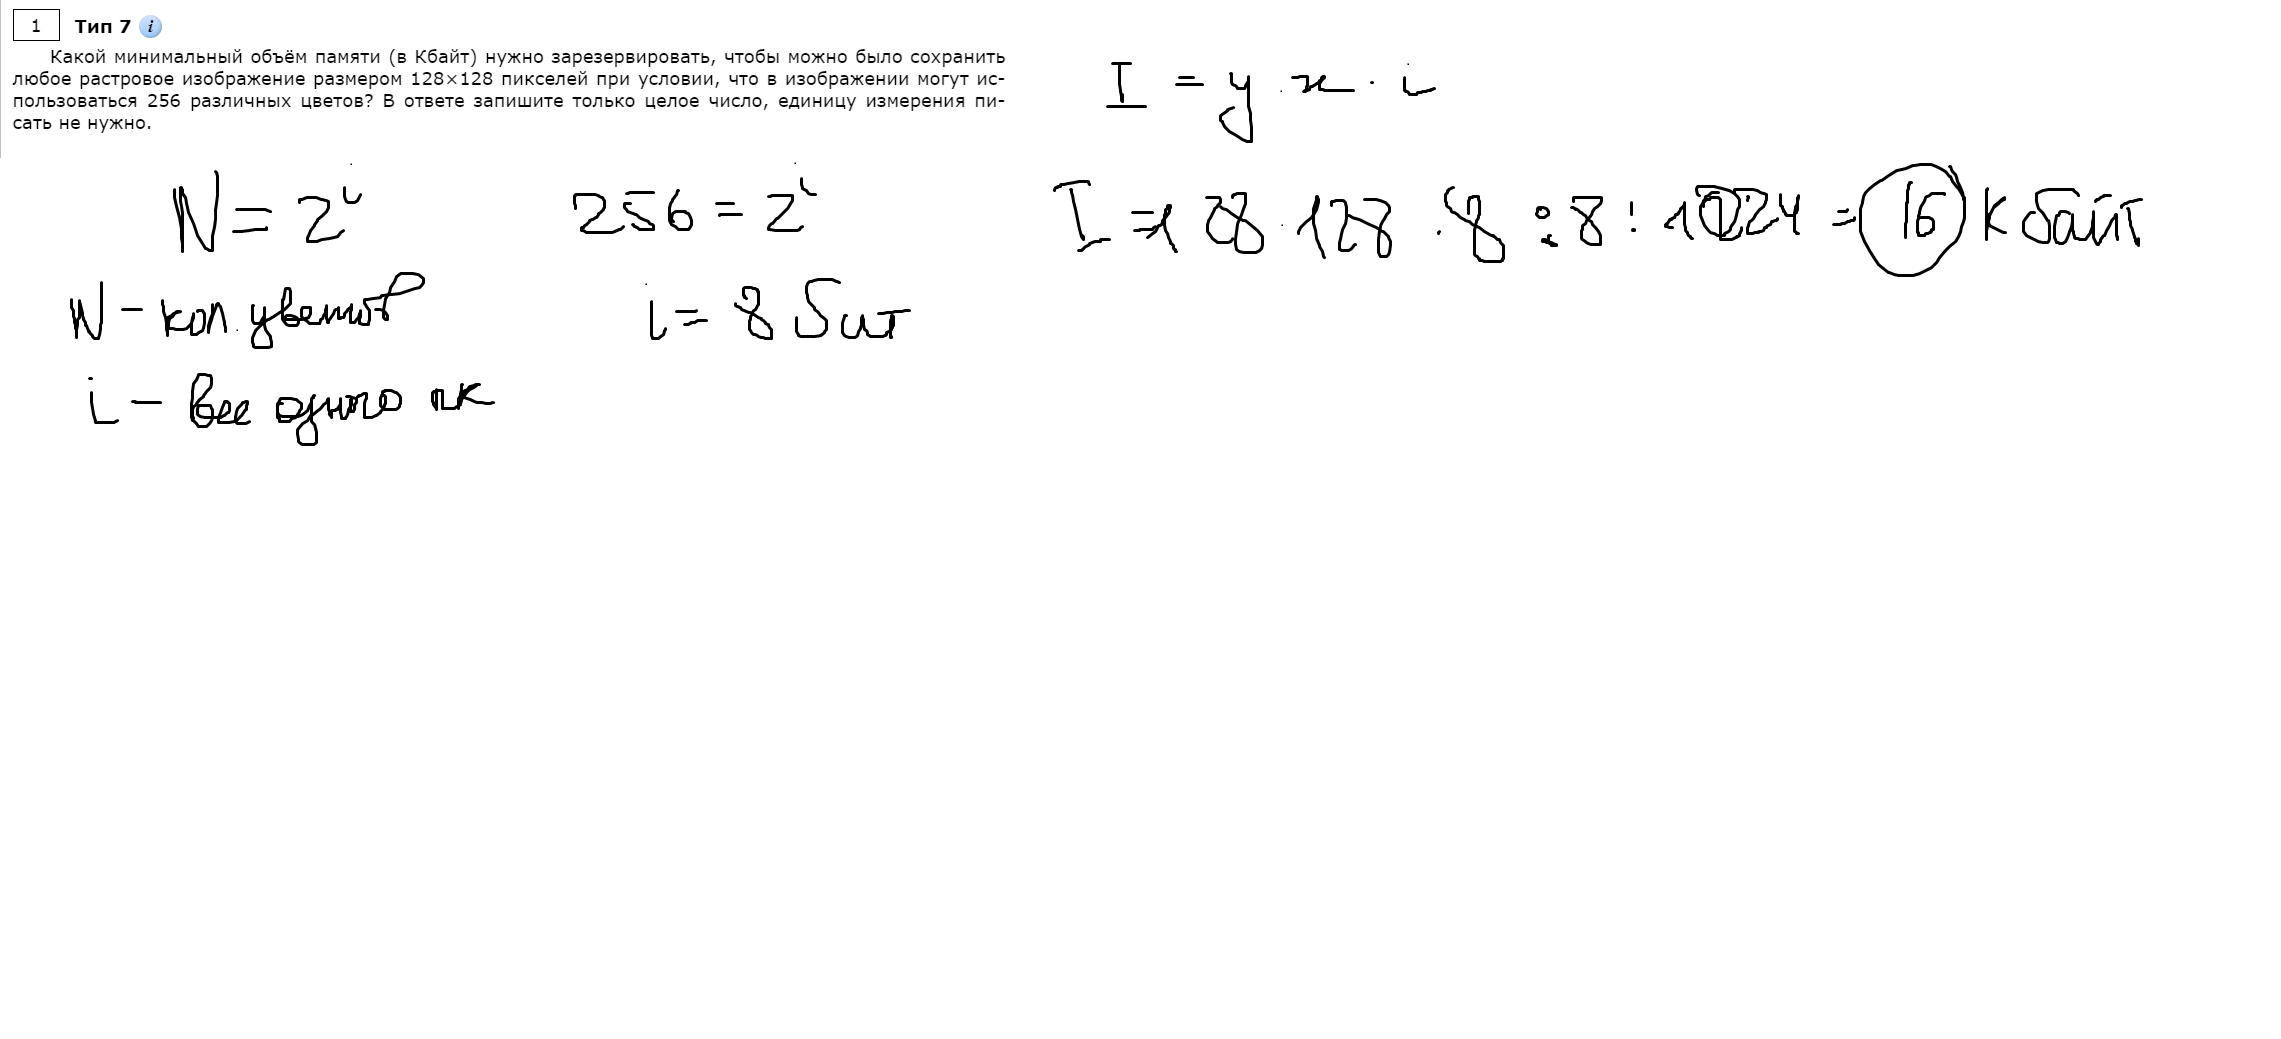 1 Тип 7 i
Какой минимальный объём памяти (в Кбайт) нужно зарезервировать, чтобы можно было сохранить
любое растровое изображение размером 128×128 пикселей при условии, что в изображении могут ис-
пользоваться 256 различных цветов? В ответе запишите только целое число, единицу измерения пи-
сать не нужно.
I = y · x · i
N = 2^i
256 = 2^i
I = 128 · 128 · 8 : 8 : 1024 = 16 Кбайт
N – кол. цветов
i = 8 бит
i – вес одного пк